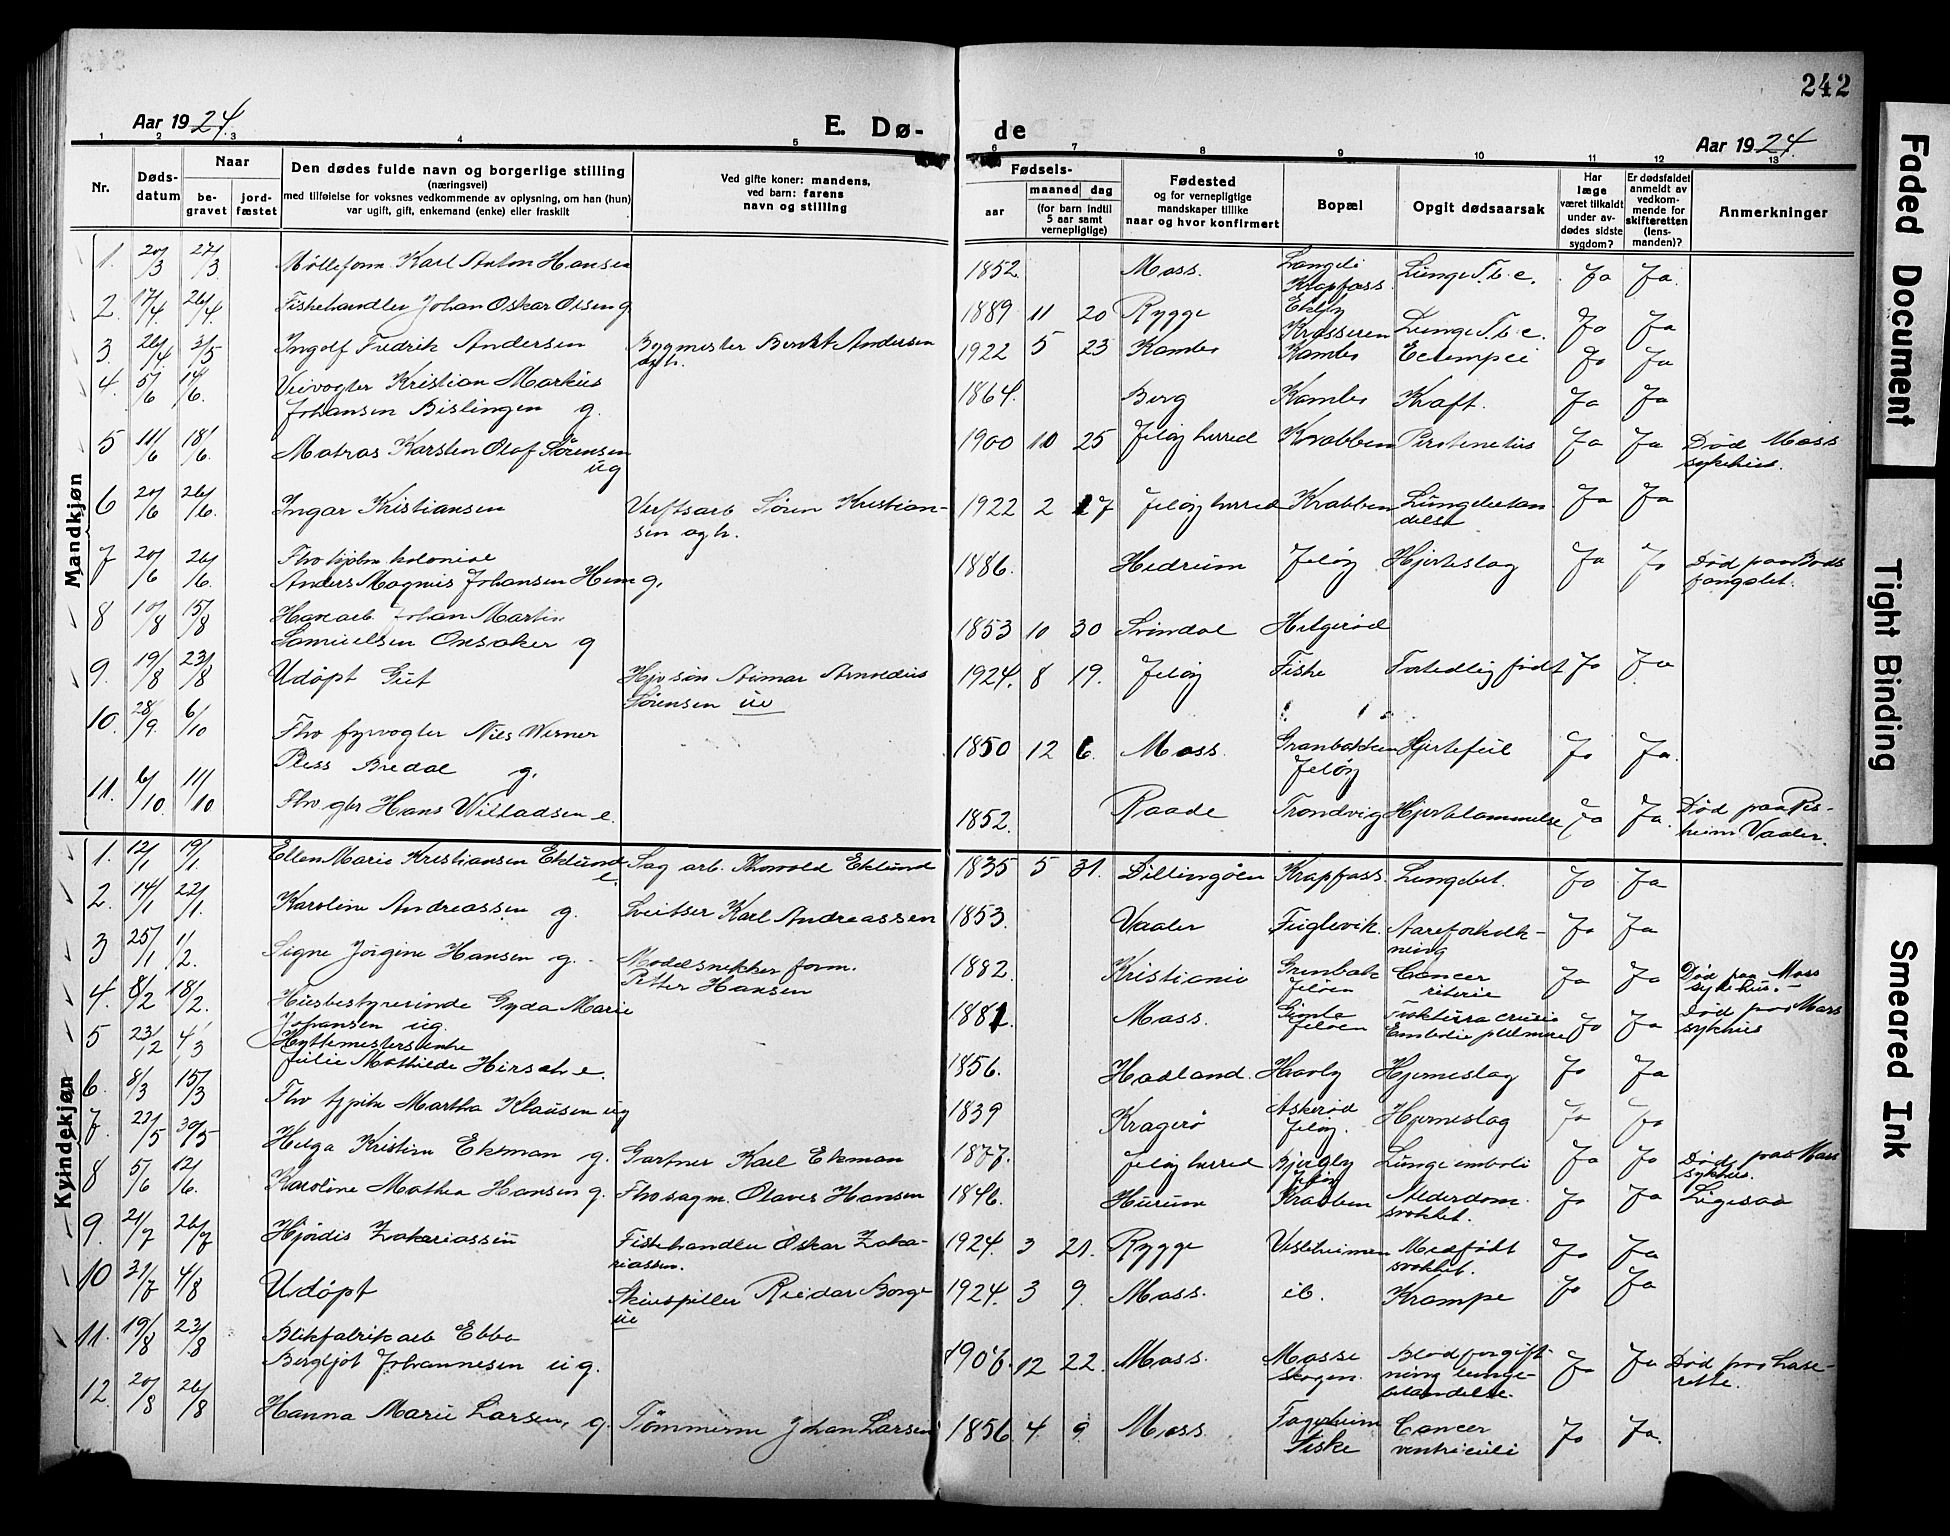 242
Aar 1924.
E. Dø-
de
Aar 1924.
1 2 3 4 5 6 7 8 9 10 11 12 13
Nr.
Døds-
datum
Naar
be-
gravet
jord-
fæstet
Den dødes fulde navn og borgerlige stilling
(næringsvei)
med tilføielse for voksnes vedkommende av oplysning, om han (hun)
var ugift, gift, enkemand (enke) eller fraskilt
Ved gifte koner: mandens,
ved barn: farens
navn og stilling
Fødsels-
aar
maaned
dag
(for barn indtil
5 aar samt
vernepligtige)
Fødested
og for vernepligtige
mandskaper tillike
naar og hvor konfirmert
Bopæl
Opgit dødsaarsak
Har
læge
været tilkaldt
under av-
dødes sidste
sygdom?
Er dødsfaldet
anmeldt av
vedkom-
mende for
skifteretten
(lens-
manden)?
Anmerkninger
Mandkjøn
1. 20/3 27/3 Mølleform. Karl Anton Hansen 1852. Moss. Krapfoss Lunge T.b.c. Ja Ja.
2. 17/4 26/4 Fiskehandler Johan Oskar Olsen g 1889 11 20 Rygge Krosseren Lunge T.b.c. Ja Ja
3. 26/4 3/5 Ingolf Fredrik Andersen Bygmester Berndt Andersen 1922 5 23 Kambo Kambo Eclempsi Ja Ja
og h.
4. 5/6 14/6. Veivogter Kristian Markus
Johansen Bislingen g. 1864. Berg Kambo Kraft. Ja Ja
5 11/6 18/6. Matros Karsten Olaf Sørensen 1900 10 25 Jeløy herred Krabben Ja Ja Død Moss
ug sykehus.
6 20/6 26/6. Ingar Kristiansen Verftsarb Søren Kristian- 1922 2 17 Jeløy herred Krabben Ja Ja
sen og h.
7 20/6 26/6. Fhv kjøbm kolonial
Anders Magnus Johansen Hem g. 1886. Hedrum Jeløy Hjerteslag Ja Ja Død paa Bods
fængslet.
8 10/8 15/8 Havearb Johan Martin
Samuelsen Onsaker g 1853 10 30 Svindal Helgerød
9. 19/8 23/8 Udøpt Gut Arnoldus 1924. 8 19. Jeløy Fiske født Ja Ja
Sørensen ue
10. 28/9. 6/10 Fhv fyrvogter Nils Werner
Pless Bredal g. 1850 12 6. Moss. Granbakken Hjertefeil Ja Ja.
Jeløy
11. 6/10. 11/10 Fhv gbr Hans Willadsen e. 1852. Raade Trondvig Hjertelammelse Ja Ja. Død paa Pis-
heim Vaaler.
Kvindekjøn
1. 12/1 19/1 Ellen Marie Kristiansen Eklund Sag arb. Thorvald Eklund 1835 5 31. Dillingøen Krapfoss. Lungebet. Ja Ja
e.
2. 14/1 22/1. Karoline Andreassen g. Sveitser Karl Andreassen 1853. Vaaler Fuglevik. Aareforkalk- Ja Ja
ning
3 25/1 1/2. Signe Jørgine Hansen g. Modelsnekker form. 1882. Kristiania Cancer Ja Ja Død paa Moss
Petter Hansen Jeløen sykehus.
4. 8/2 18/2. Husbestyrerinde Gyda Marie
Johansen ug. 1881. Moss. Gimle Fraktura cruris Ja Ja Død paa Moss
Jeløen Embolie pulmone sykhus
5 23/2 4/3 Hyttemestersenke
Julie Mathilde Hirsch e. 1856. Hadland. Haaby Hjerneslag Ja Ja
6. 8/3 15/3 Fhv tjpike Martha Klausen ug 1839 Kragerø Askerød Hjerneslag Ja Ja
Jeløy.
7. 23/5 30/5 Helga Kristine Ekman g. Gartner Karl Ekman 1877. Jeløy herred Bjergby Lunge emboli Ja Ja Død paa Moss
Jeløy sykhus.
8 5/6 12/6. Karoline Mathea Hansen g. Fhv sagm. Olaves Hansen 1846. Hurum Krabben Alderdom. Ja Ja Ligesaa
svakhet.
9. 21/7 26/7 Hjørdis Zakariassen Fiskehandler Oskar Zaka- 1924. 3 21. Rygge Medfødt Ja Ja
riassen. svakhet.
10 31/7 4/8 Udøpt Skuespiller Reidar Borge 1924. 3 9. Moss. ib. Krampe Ja Ja
ue
11. 19/8 23/8 Blikfabrikarb Ebba
Bergljot Johannesen ug. 1906. 12 22. Moss. Mosse Blodforgift- Ja Ja Død paa Lasa-
skogen. ning lunge- rette.
betændelse.
12. 20/8 26/8 Hanna Marie Larsen, g. Tømmerm Johan Larsen 1856 4. 9. Moss. Fagerheim Cancer Ja Ja.
Fiske ventriculi
Faded Document
Tight Binding
Smeared Ink